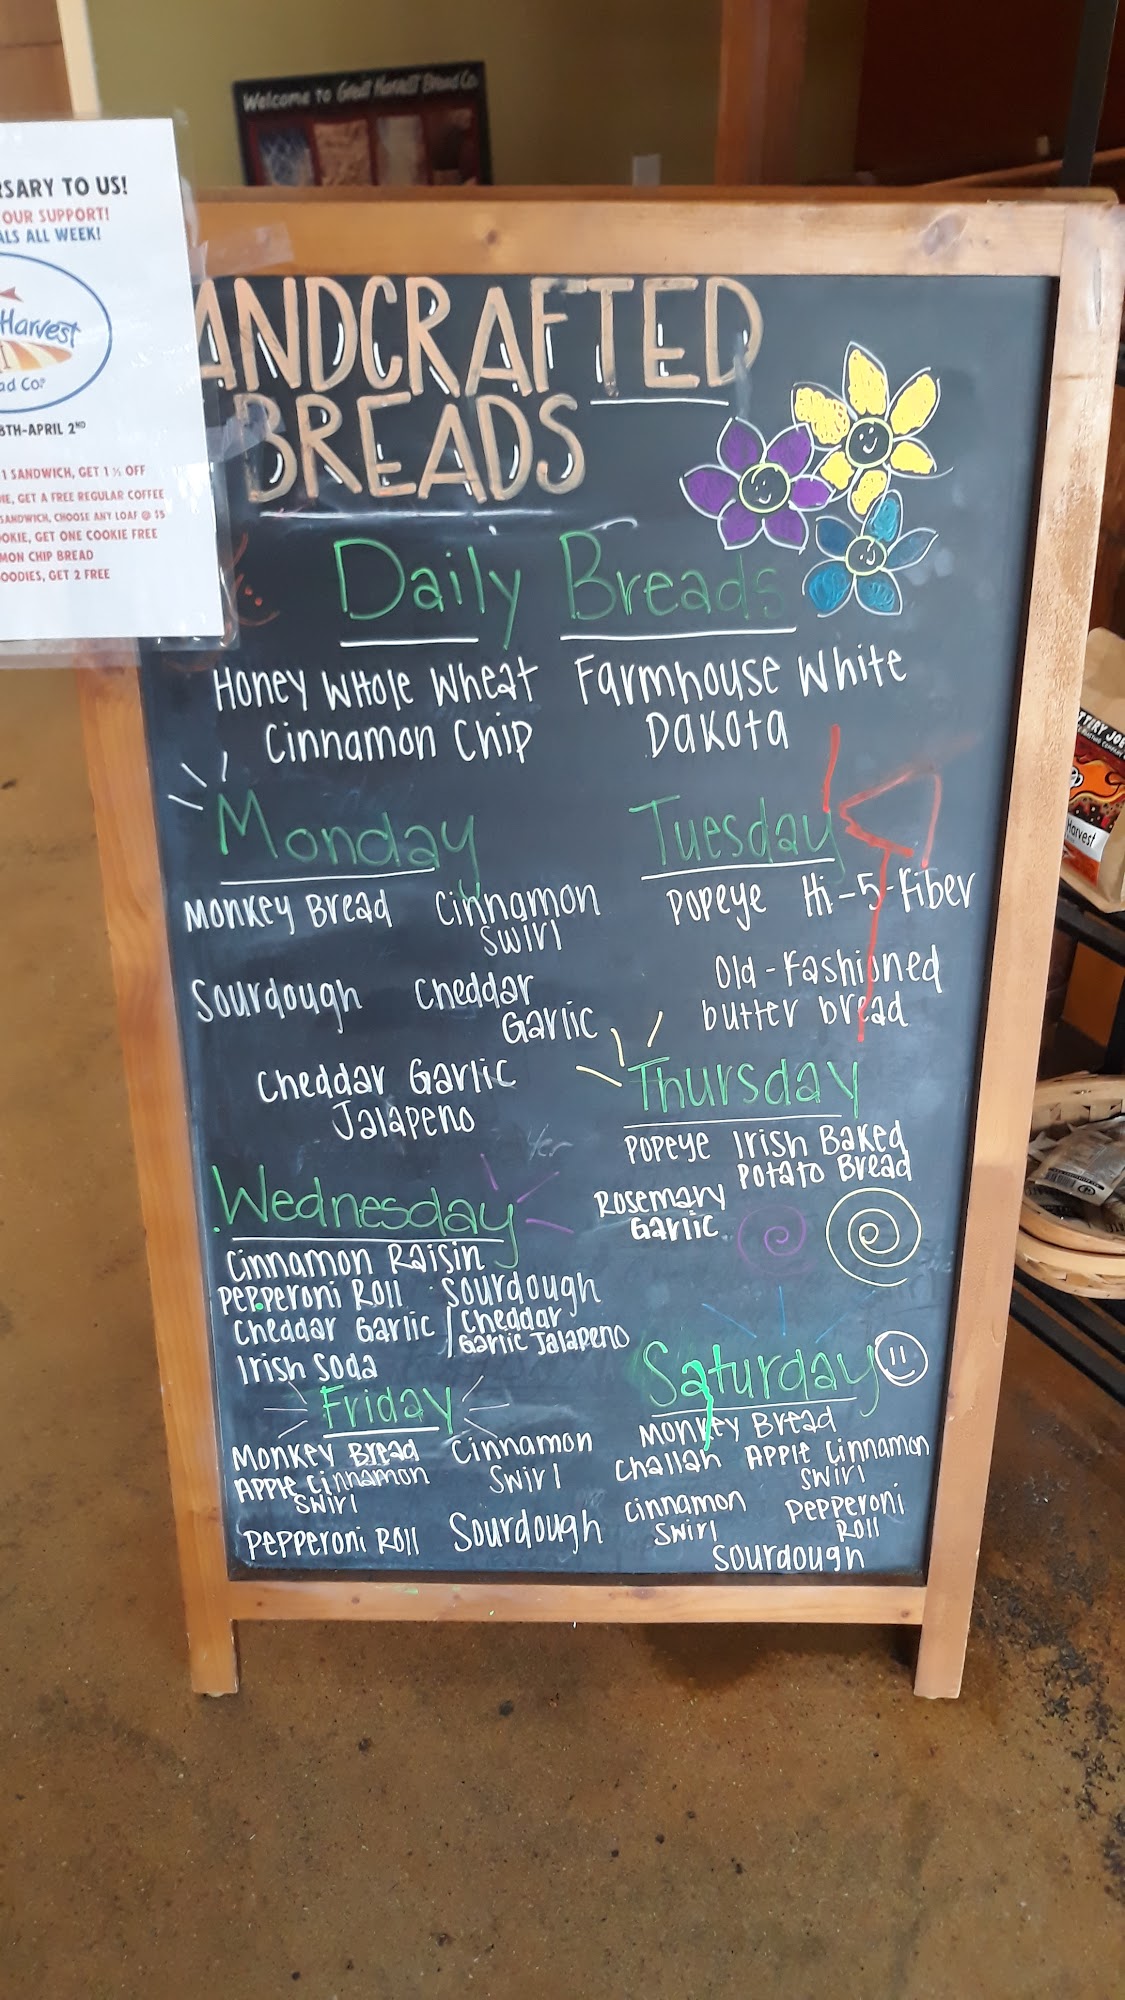 Welcome to Great Harvest Bread Co.
RSARY TO US!
OUR SUPPORT!
ALS ALL WEEK!
Harvest
ad Co.
8TH-APRIL 2ND
1 SANDWICH, GET 1 ½ OFF
IE, GET A FREE REGULAR COFFEE
SANDWICH, CHOOSE ANY LOAF @ $5
OOKIE, GET ONE COOKIE FREE
MON CHIP BREAD
OODIES, GET 2 FREE
ANDCRAFTED
BREADS
Daily Breads
Honey Whole Wheat Farmhouse White
Cinnamon Chip Dakota
Monday
Monkey Bread Cinnamon
Swirl
Sourdough Cheddar
Garlic
Cheddar Garlic
Jalapeno
Tuesday
Popeye Hi-5-Fiber
Old-Fashioned
butter bread
Wednesday
Cinnamon Raisin
Pepperoni Roll Sourdough
Cheddar Garlic / Cheddar
Garlic Jalapeno
Irish Soda
Thursday
Popeye Irish Baked
Potato Bread
Rosemary
Garlic
Friday
Monkey Bread Cinnamon
Swirl
Apple Cinnamon
Swirl
Pepperoni Roll Sourdough
Saturday
Monkey Bread
Challah Apple Cinnamon
Swirl
Cinnamon
Swirl
Pepperoni
Roll
Sourdough
Harvest